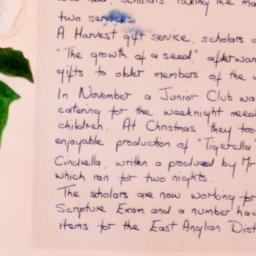 two services
A Harvest gift service, scholars
"The growth of a seed," afterwar
gifts to older members of the
In November a Junior Club wa
catering for the weeknight need
children. At Christmas they too
enjoyable production of "Tigerella"
Cindrella, written a produced by Mr
which ran for two nights.
The scholars are now working for
Scripture Exam and a number hav
items for the East Anglian Dist